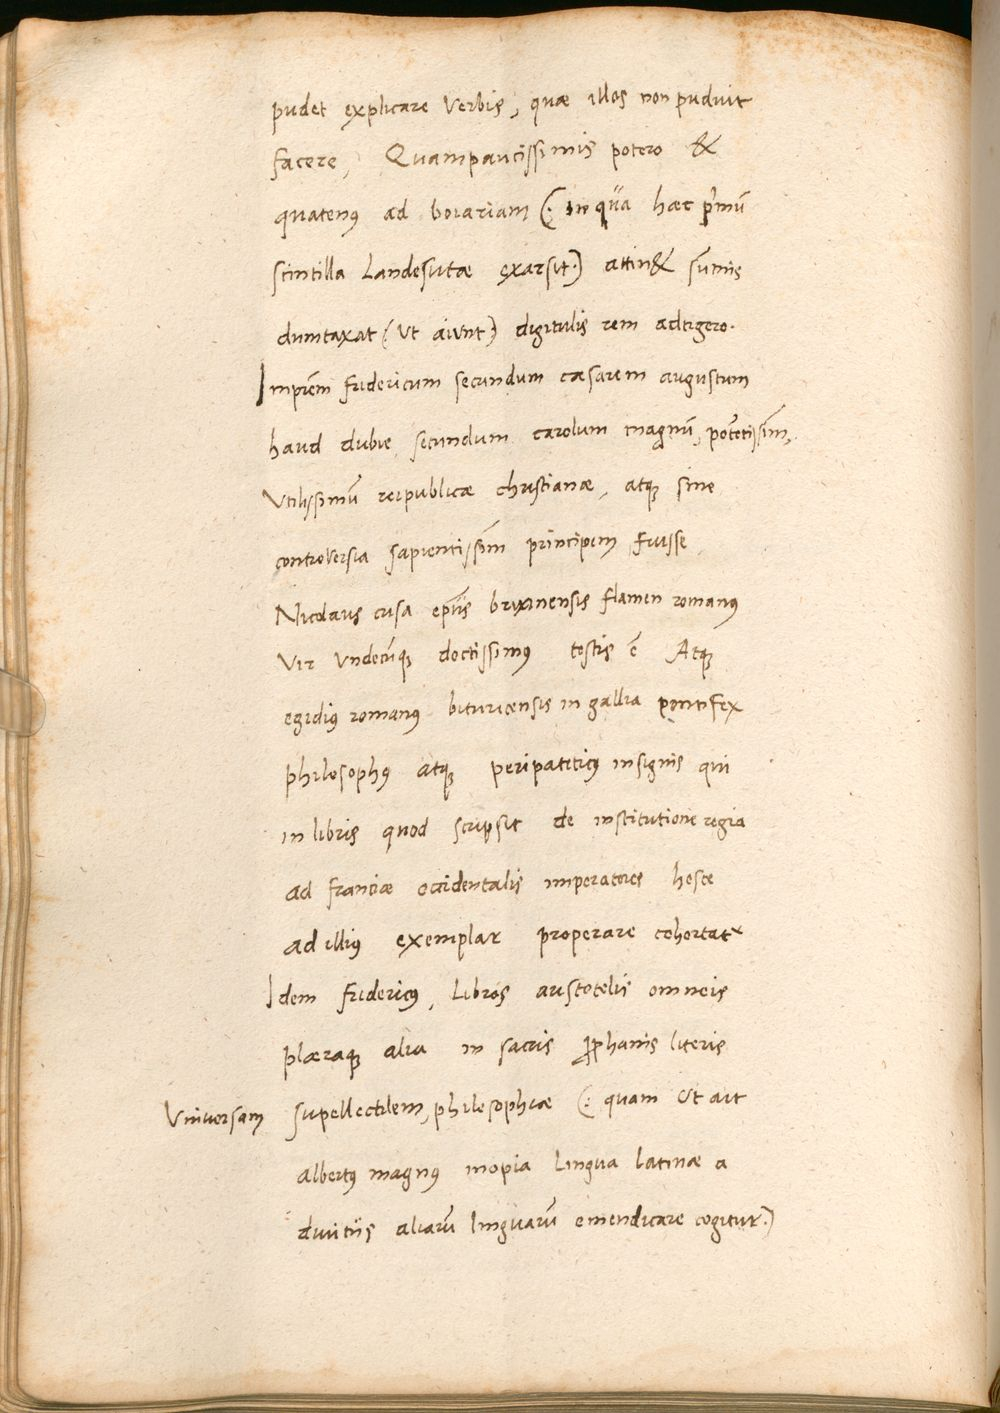 pudet explicare verbis, quæ illos non puduit
facere, Quampaucissimis potero &
quatenꝰ ad boiariam (: in qua hæc p̄mū
scintilla Landesutæ exarsit.) attin& sūmis
dumtaxat (ut aiunt) digitulis rem adtigero.
Imprēm fridericum secundum cæsarem augustum
haud dubie, secundum carolum magnū, potētissīm,
Utilissimū reipublicæ christianæ, atqꝫ sine
controversia sapientissīm principem fuisse,
Nicolaus cusa ep̄us brixinensis flamen romanꝰ
Vir undecūqꝫ doctissimꝰ testis ē Atqꝫ
egidiꝰ romanꝰ bituricensis in gallia pontifex
philosophꝰ atqꝫ peripateticꝰ insignis qui
in libris quod scripsit de institutione regia
ad franciæ occidentalis imperatores hosce
ad illiꝰ exemplar properare cohortat᷑
Idem fridericꝰ, Libros aristotelis omneis
plæraqꝫ alia in sacris ꝓphanis literis
Universam supellectilem, philosophiæ (: quam ut ait
albertꝰ magnꝰ inopia Lingua latinæ a
divitiis aliarū linguarū emendicare cogitur.)